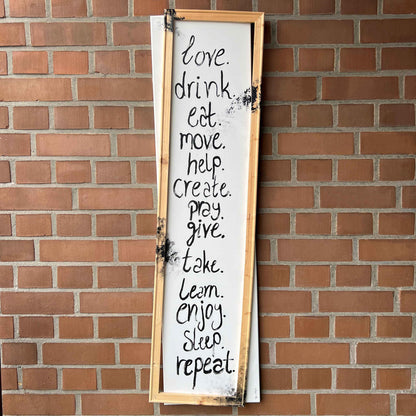 love.
drink.
eat.
move.
help.
Create.
pray.
give.
take.
Learn.
enjoy.
Sleep.
repeat.